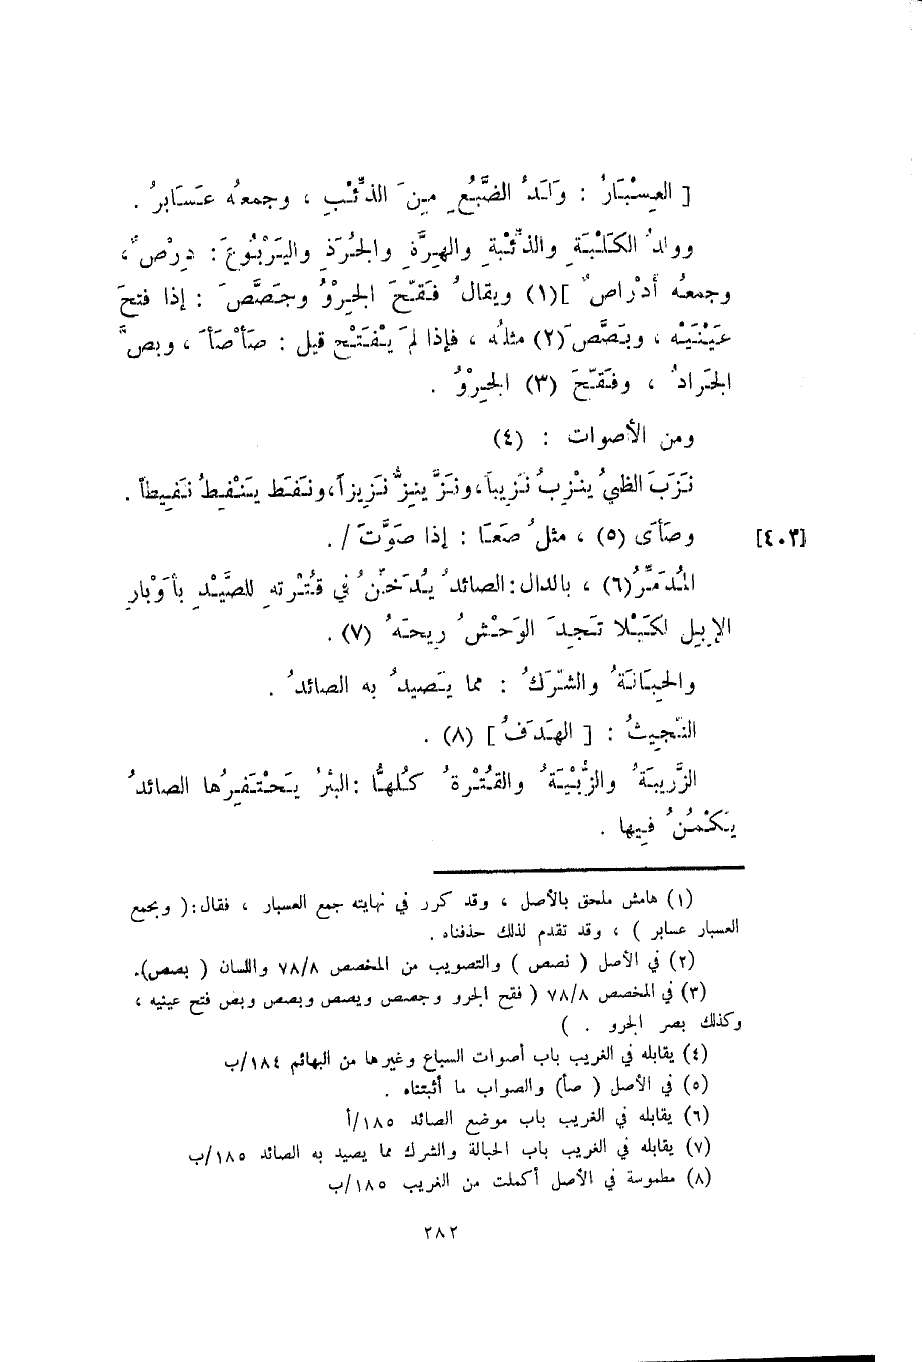 [ العِسْبَارُ : وَلَدُ الضَّبُعِ مِنَ الذِّئْبِ ، وجمعهُ عَسَابرُ .
وولدُ الكَلْبَةِ والذِّئْبةِ والهِرَّةِ والجُرَذِ واليَرْبُوعِ : دِرْصٌ ،
وجمعهُ أدْراصٌ ](١) ويقالُ فَقَّحَ الجِرْوُ وجَصَّصَ : إذا فتحَ
عَيْنَيْه ، وبَصَّصَ (٢) مثلُه ، فإذا لمَ يَفْتَحْ قيل : صَأْصَأَ ، وبصَّ
الجَرادُ ، وفَقَّحَ (٣) الجِرْوُ .
ومن الأصوات : (٤)
نَزَبَ الظبيُ ينْزِبُ نَزِيباً ، ونَزَّ ينِزُّ نَزِيزاً ، ونَفَطَ يَنْفِطُ نَفِيطاً .
وصَأَى (٥) ، مثلُ صَعَا : إذا صَوَّتَ / . [٤٠٣]
المُدَمِّرُ(٦) ، بالدال : الصائدُ يُدَخِّنُ في قُتْرتهِ للصَّيْدِ بأوْبارِ
الإبِلِ لكَيْلا تَجِدَ الوَحْشُ ريحَهُ (٧) .
والحِبَالَةُ والشَّرَكُ : مما يَصيدُ به الصائدُ .
النَّجِيثُ : [ الهَدَفُ ] (٨) .
الزَّرِيبَةُ والزُّبْيَةُ والقُتْرةُ كُلهَّا : البئرُ يَحْتَفِرُها الصائدُ
يَكْمُنُ فيها .
(١) هامش ملحق بالأصل ، وقد كرر في نهايته جمع العسبار ، فقال : ( ويجمع
العسبار عسابر ) ، وقد تقدم لذلك حذفناه .
(٢) في الأصل ( نصص ) والتصويب من المخصص ٧٨/٨ واللسان ( بصص ).
(٣) في المخصص ٧٨/٨ ( فقح الجرو وجصص ويصص وبصص وبص فتح عينيه ،
وكذلك بصر الجرو . )
(٤) يقابله في الغريب باب أصوات السباع وغيرها من البهائم ١٨٤/ب
(٥) في الأصل ( صأ ) والصواب ما أثبتناه .
(٦) يقابله في الغريب باب موضع الصائد ١٨٥/أ
(٧) يقابله في الغريب باب الحبالة والشرك مما يصيد به الصائد ١٨٥/ب
(٨) مطموسة في الأصل أكملت من الغريب ١٨٥/ب
٢٨٢